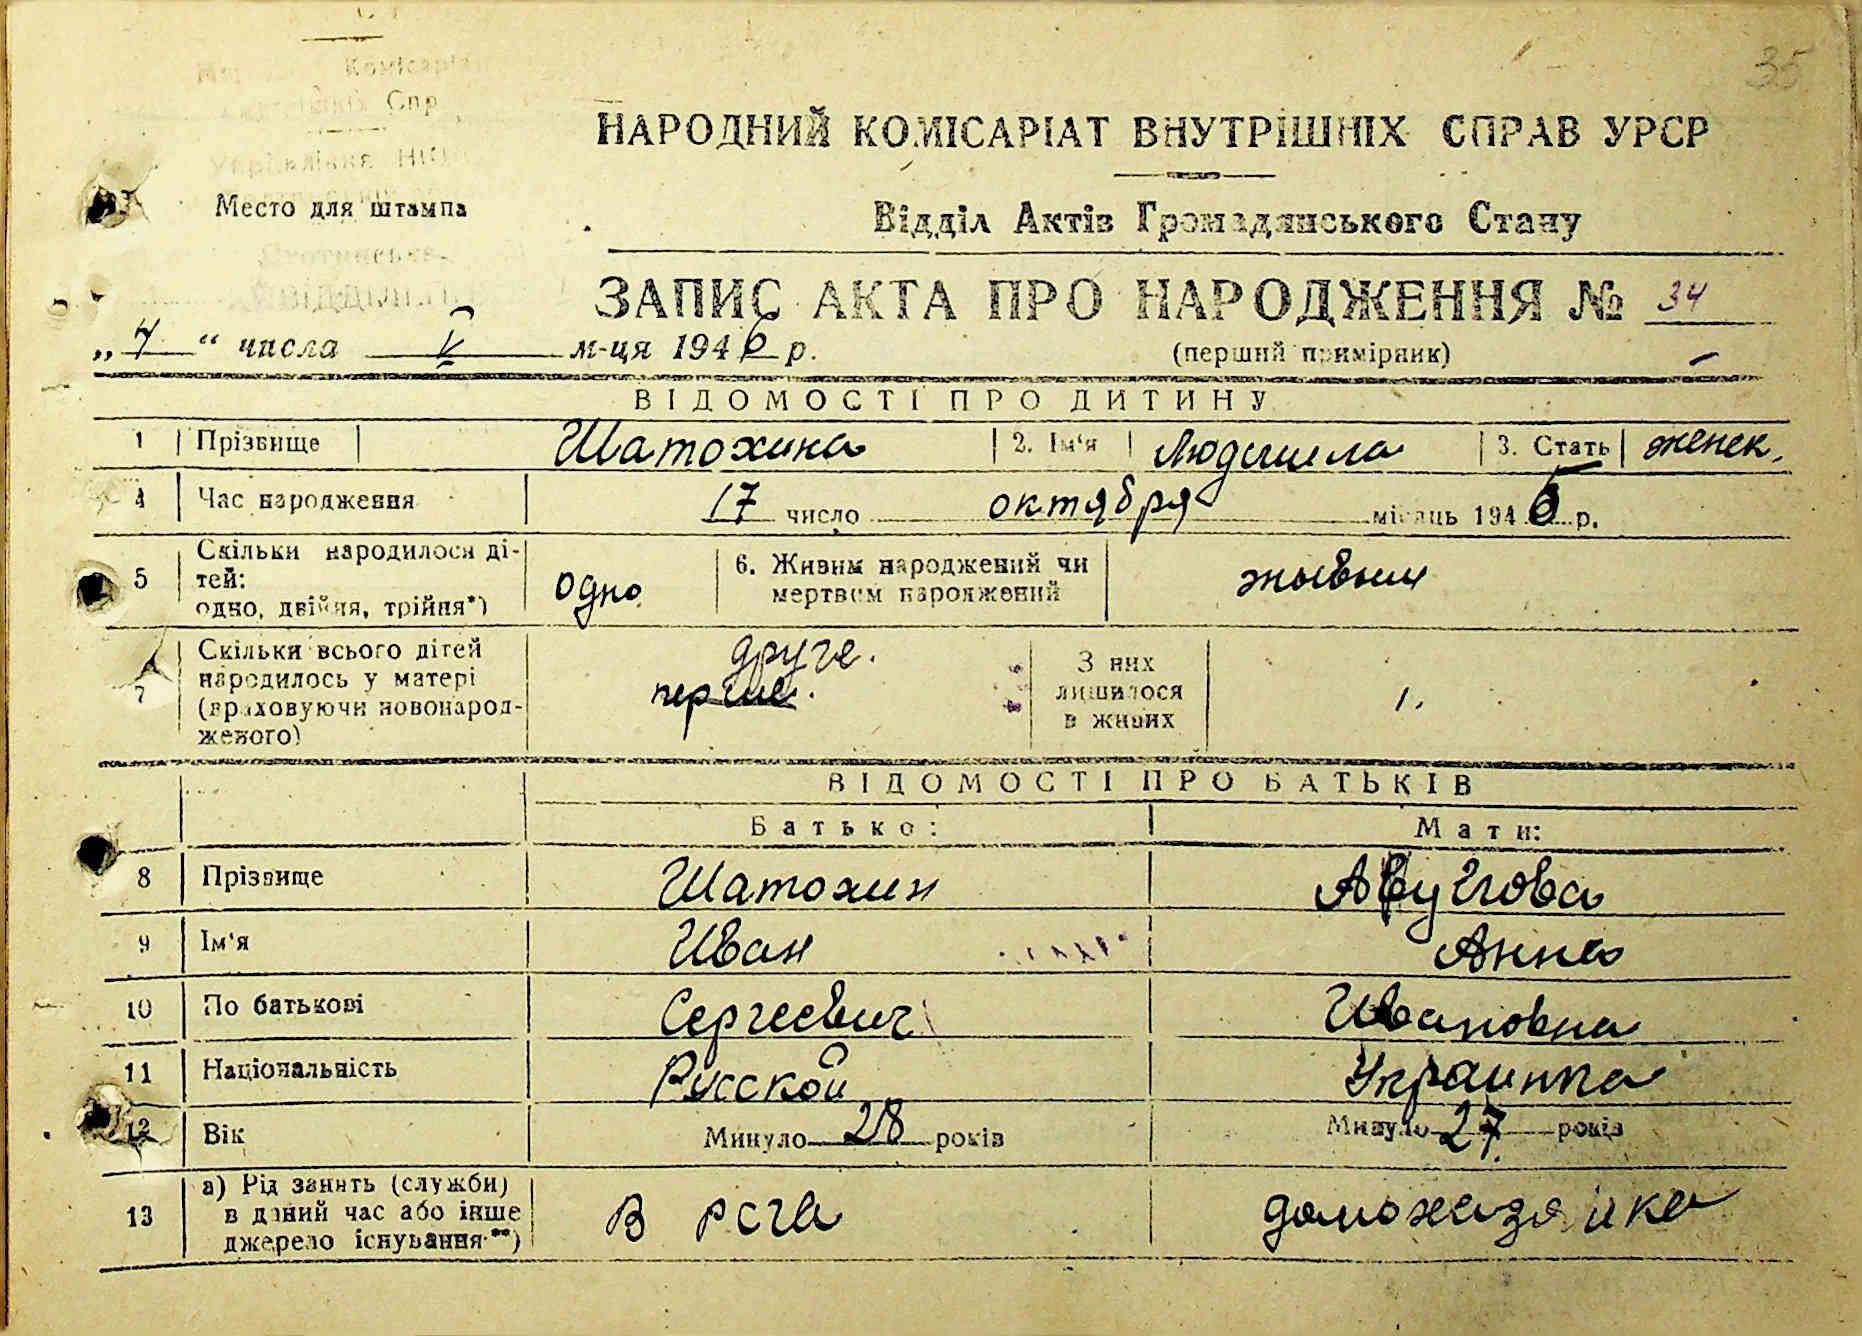 35
Комісаріа
Спр
Место для штампа
НАРОДНИЙ КОМІСАРІАТ ВНУТРІШНІХ СПРАВ УРСР
Відділ Актів Громадянського Стану
ЗАПИС АКТА ПРО НАРОДЖЕННЯ № 34
„ 4 “ числа V м-ця 1946 р.
(перший примірник)
ВІДОМОСТІ ПРО ДИТИНУ
1 Прізвище Шатохина 2. Ім'я Людмила 3. Стать женск.
4 Час народження 17 число октября місяць 1945 р.
5 Скільки народилося ді-
тей:
одно, двійня, трійня*)
одно
6. Живим народжений чи
мертвим народжений
живым
7 Скільки всього дітей
народилось у матері
(враховуючи новонарод-
женого)
друге.
перше.
З них
лишилося
в живих
1.
ВІДОМОСТІ ПРО БАТЬКІВ
Батько: Мати:
8 Прізвище Шатохин
9 Ім'я Иван Анна
10 По батькові Сергеевич Ивановна
11 Національність Русской Украинка
12 Вік Минуло 28 років Минуло 27 років
13 а) Рід занять (служби)
в даний час або інше
джерело існування **)
В
домохазяйка